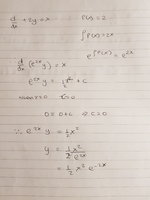 d/dx + 2y = x    P(x) = 2
∫P(x) = 2x
e^∫P(x) = e^2x
∴ d/dx (e^2x y) = x
e^2x y = 1/2 x² + C
x=0
0 = 0 + C    C = 0
∴ e^2x y = 1/2 x²
y = 1/2 x²/e^2x
= 1/2 x² e^-2x